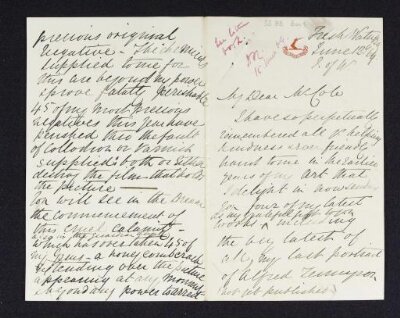 Fresh Water
June 12.
I. of W
My Dear Mr Cole
I have so perpetually
remembered all yr helping
kindness ever
to me in the earlier
years of my art that
I delight in now
you four of my latest
works
the very latest of
all, my last portrait
of Alfred Tennyson
not yet published
precious original
negative - The chemicals
supplied to me for
this are beyond my power
& prove fatally perishable
45 of my most precious
negatives this year have
perished thro the fault
of Collodion or Varnish
supplied & both or either
destroy the film that holds
the picture
You will see in the Dream
the commencement of
this cruel calamity
which has over taken 45 of
my gems - a honey comb crack
extending over the picture
appearing at any moment
& beyond any power to arrest